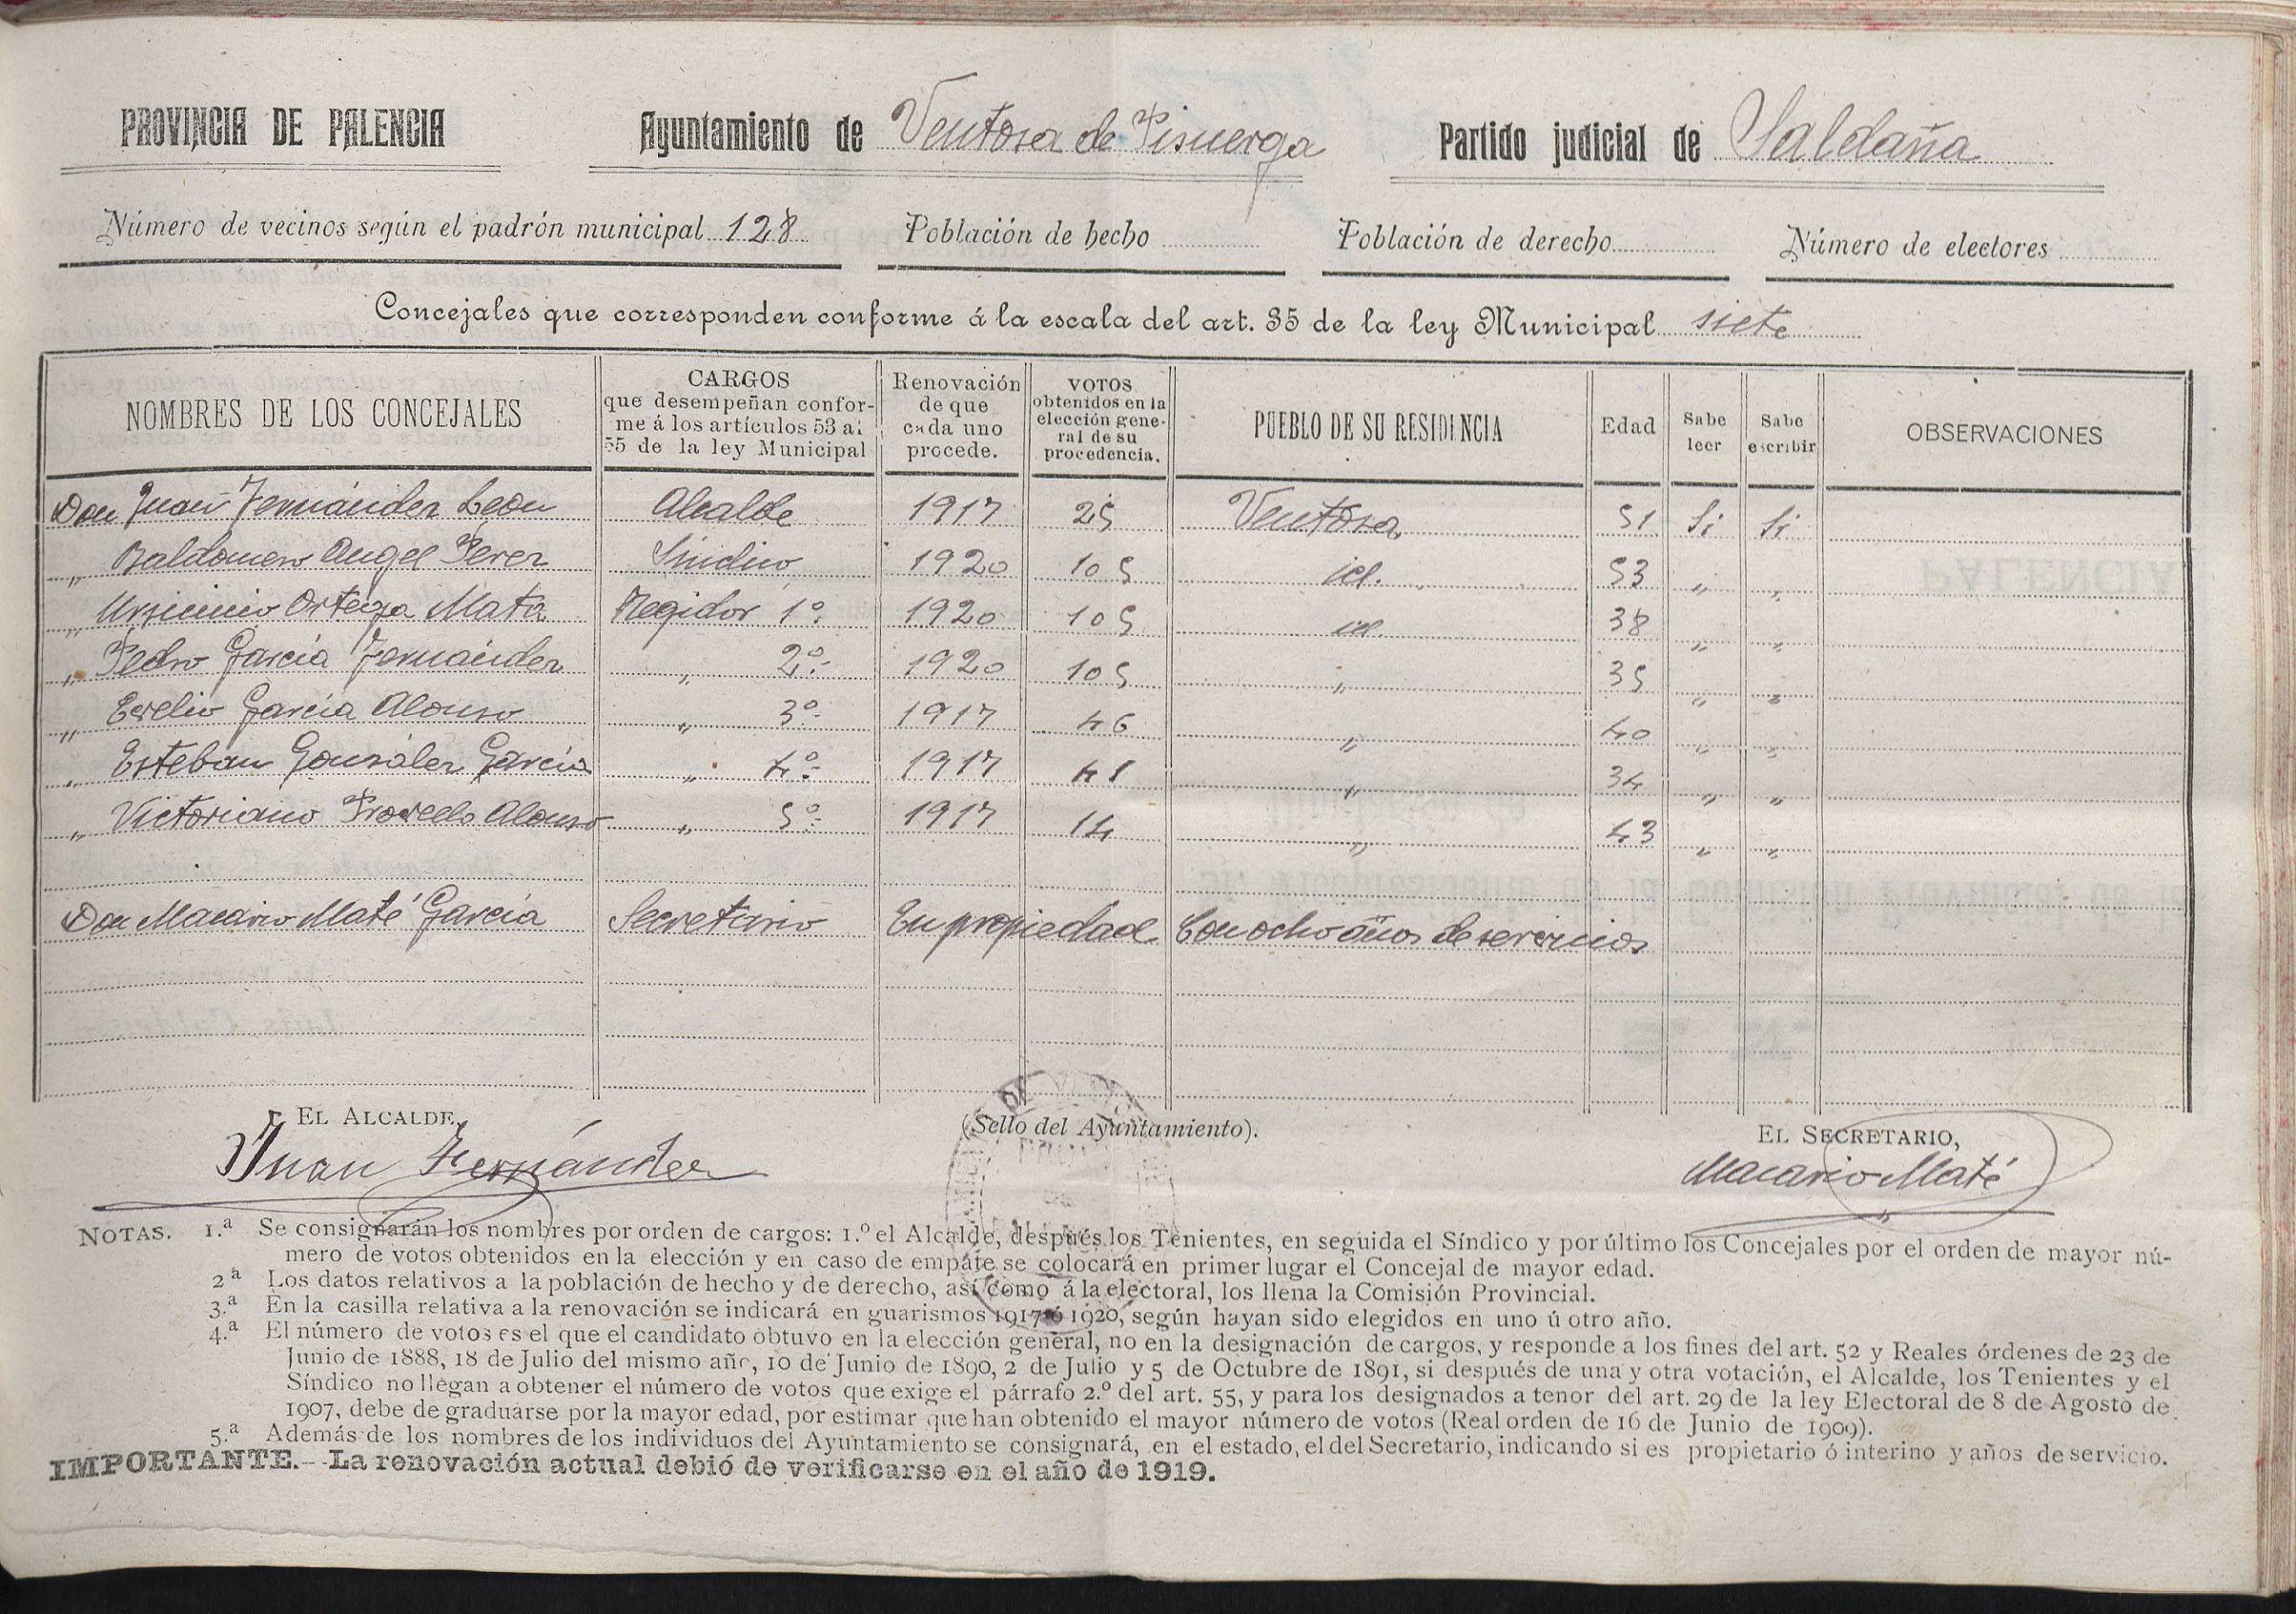 PROVINCIA DE PALENCIA Ayuntamiento de Ventosa de Pisuerga Partido judicial de Saldaña
Número de vecinos según el padrón municipal 128 Población de hecho Población de derecho Número de electores
Concejales que corresponden conforme á la escala del art. 35 de la ley Municipal siete
NOMBRES DE LOS CONCEJALES CARGOS que desempeñan conforme á los artículos 53 al 55 de la ley Municipal Renovación de que cada uno procede. VOTOS obtenidos en la elección general de su procedencia. PUEBLO DE SU RESIDENCIA Edad Sabe leer Sabe escribir OBSERVACIONES
Don Juan Fernández León Alcalde 1917 25 Ventosa 51 Si Si
„ Baldomero Angel Pérez Síndico 1920 105 id. 53 „ „
„ Ursicinio Ortega Mata Regidor 1º 1920 105 id. 38 „ „
„ Pedro García Fernández „ 2º 1920 105 „ 35 „ „
„ Evelio García Alonso „ 3º 1917 46 „ 40 „ „
„ Esteban González García „ 4º 1917 41 „ 34 „ „
„ Victoriano Alonso „ 5º 1917 14 „ 43 „ „
Don Macario Maté García Secretario En propiedad Con ocho años de servicios
EL ALCALDE, (Sello del Ayuntamiento). EL SECRETARIO,
Juan Fernández Macario Maté
NOTAS. 1.ª Se consignarán los nombres por orden de cargos: 1.º el Alcalde, después los Tenientes, en seguida el Síndico y por último los Concejales por el orden de mayor nú-
mero de votos obtenidos en la elección y en caso de empate se colocará en primer lugar el Concejal de mayor edad.
2ª Los datos relativos a la población de hecho y de derecho, así como á la electoral, los llena la Comisión Provincial.
3.ª En la casilla relativa a la renovación se indicará en guarismos 1917 ó 1920, según hayan sido elegidos en uno ú otro año.
4.ª El número de votos es el que el candidato obtuvo en la elección general, no en la designación de cargos, y responde a los fines del art. 52 y Reales órdenes de 23 de
Junio de 1888, 18 de Julio del mismo año, 10 de Junio de 1890, 2 de Julio y 5 de Octubre de 1891, si después de una y otra votación, el Alcalde, los Tenientes y el
Síndico no llegan a obtener el número de votos que exige el párrafo 2.º del art. 55, y para los designados a tenor del art. 29 de la ley Electoral de 8 de Agosto de
1907, debe de graduarse por la mayor edad, por estimar que han obtenido el mayor número de votos (Real orden de 16 de Junio de 1909).
5.ª Además de los nombres de los individuos del Ayuntamiento se consignará, en el estado, el del Secretario, indicando si es propietario ó interino y años de servicio.
IMPORTANTE.--La renovación actual debió de verificarse en el año de 1919.